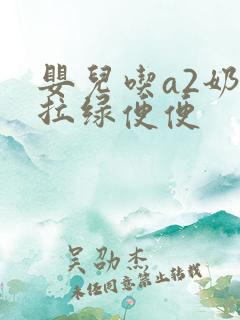 嬰兒喫a2奶
拉绿便便
吴劭杰
未经同意禁止转载